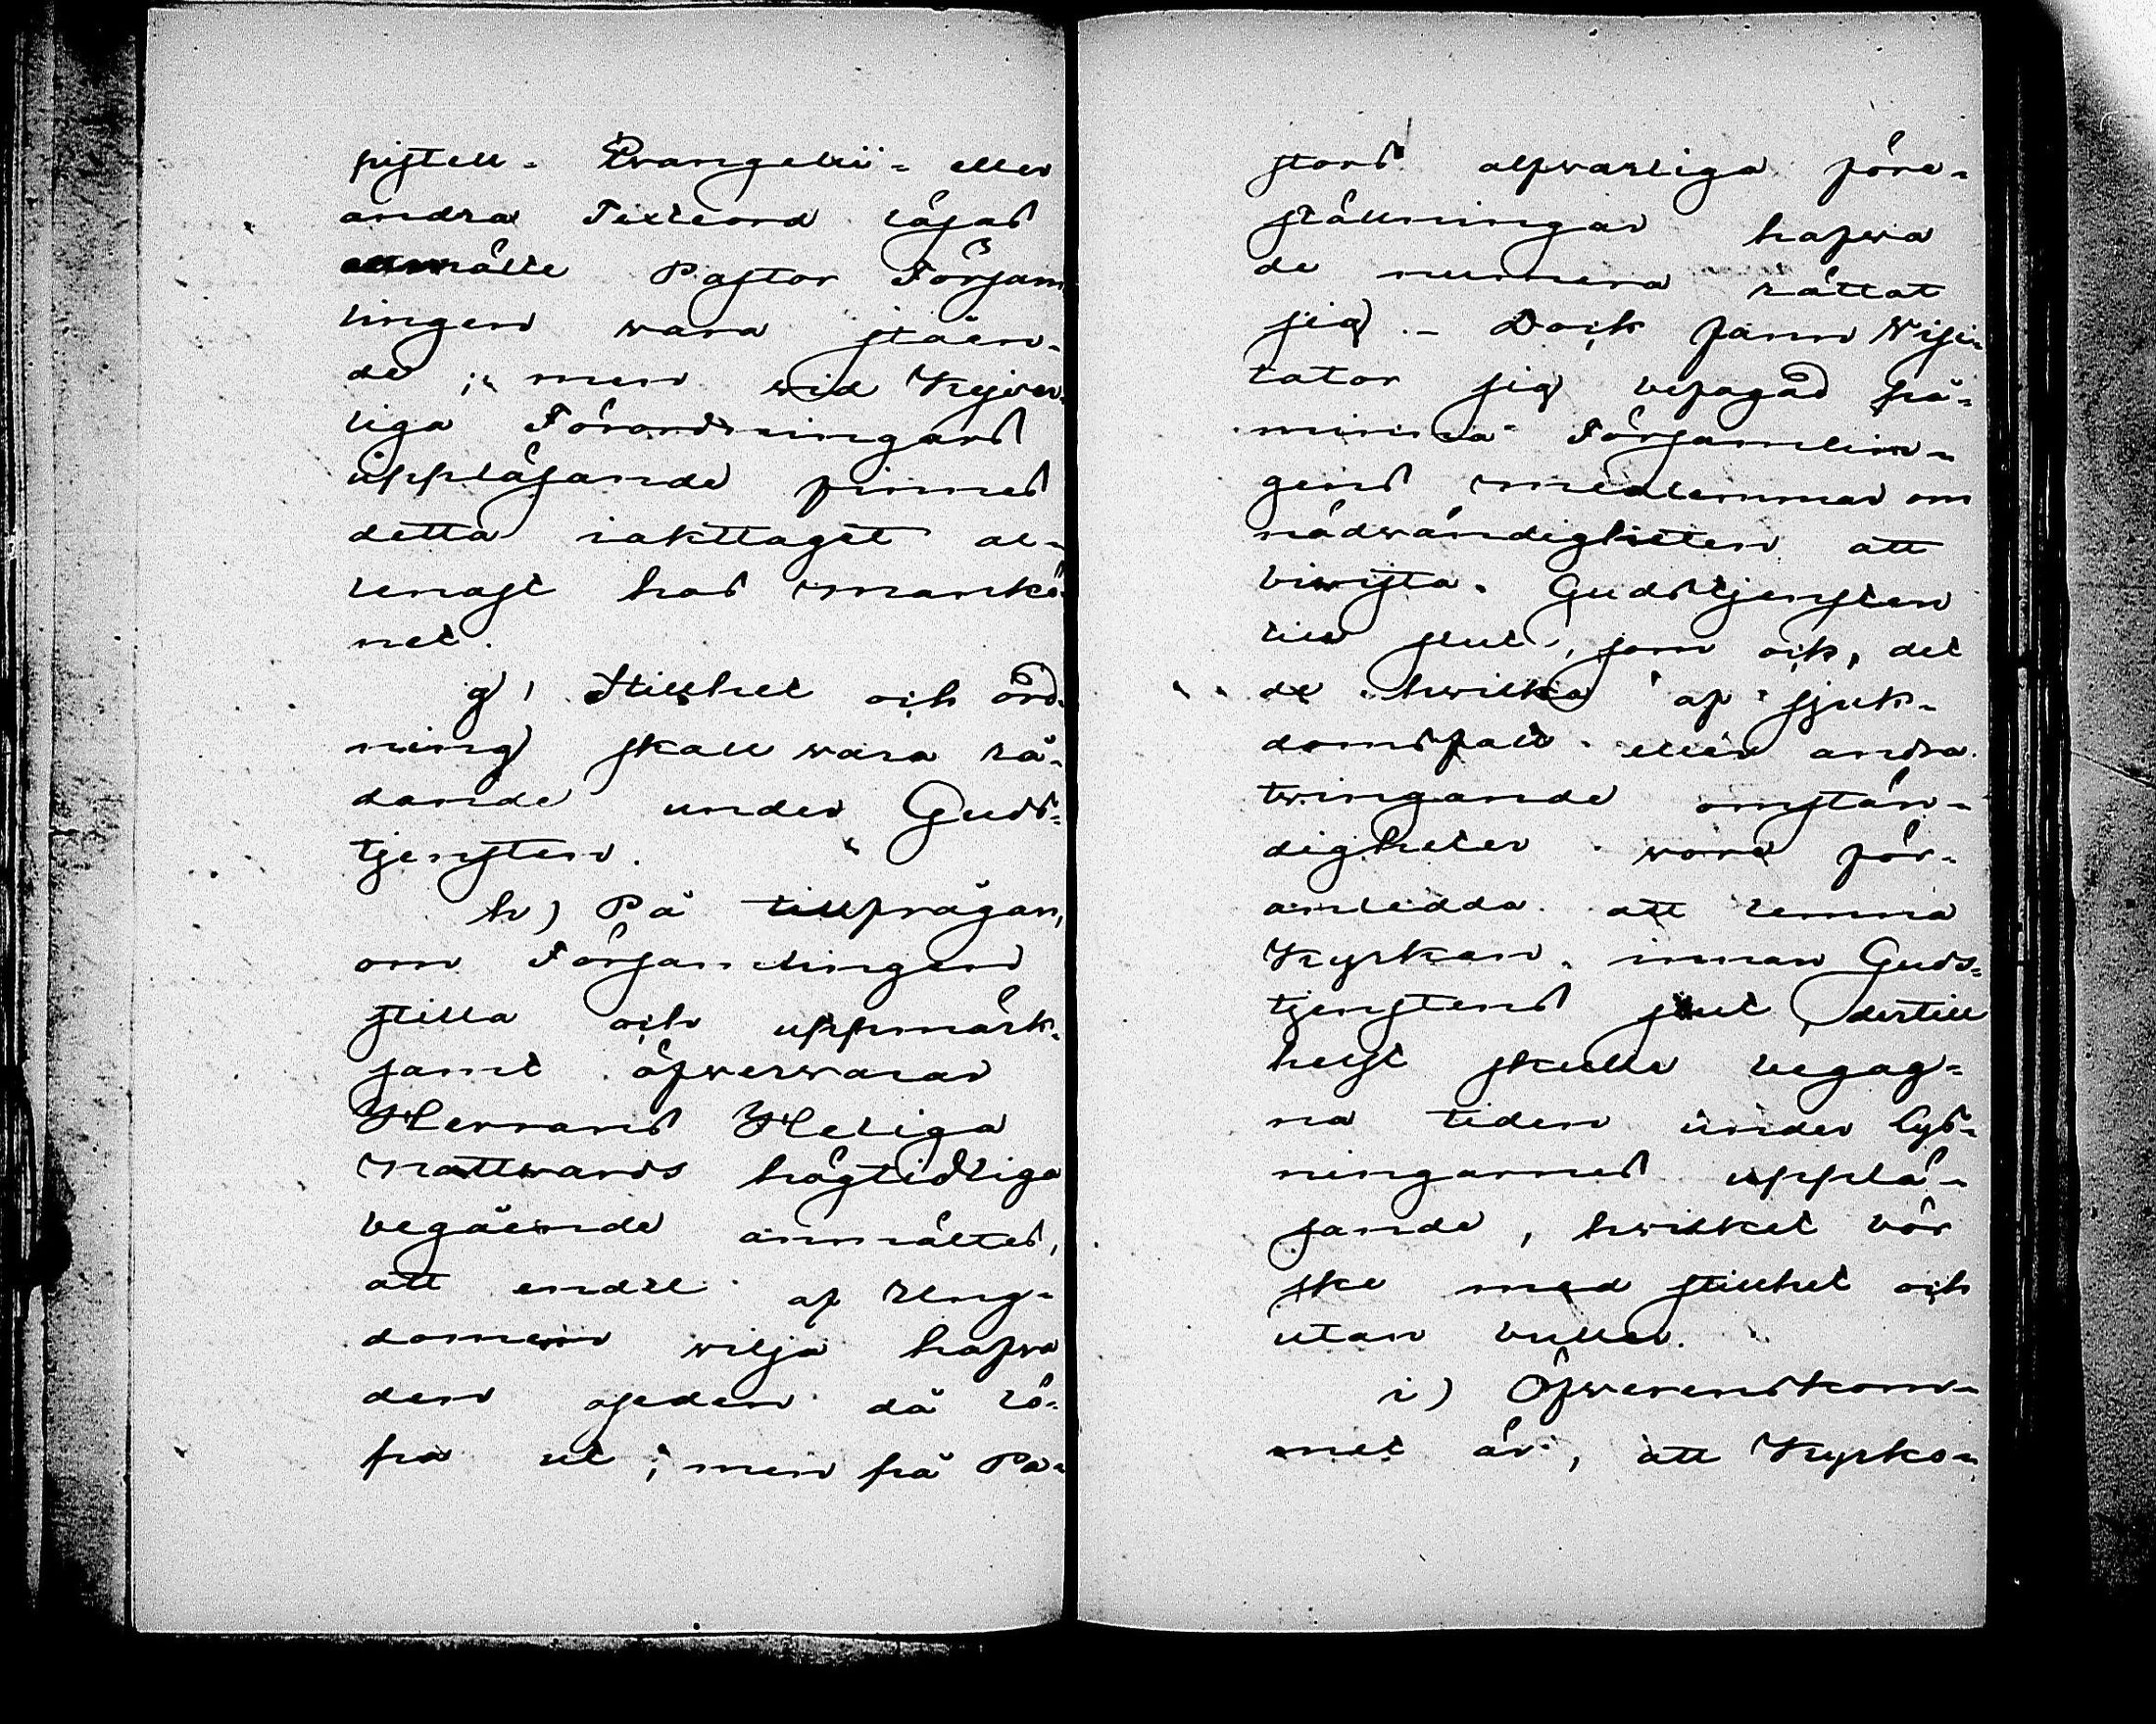 pistell- Evangelii- eller
andra Textord läsas
anmälte Pastor Försam
lingen wara ståen-
de ; men wid Kejser-
liga Förordningars
uppläsande finnes
detta iakttaget al-
lenast hos mankö-
net.
g) Stillhet och ord-
ning skall wara rå-
dande under Guds-
tjensten.
h) På tillfrågan,
om Församlingen
stilla och uppmärk-
samt öfwerwarar
Herrans Heliga
Nattwards högtidliga
begående anmältes,
att endel af Ung-
domen wilja hafwa
den oseden då lö-
pa ut ; men på Pa-
stors alfwarliga före-
ställningar hafwa
de numera rättat
sig. - Dock fann Visi-
tator sig befogad på-
minna Församlin-
gens medlemmar om
nödwändigheten att
biwista Gudstjensten
till slut, som ock, det
de hwilka af sjuk-
domsfall eller andra
twingande omstän-
digheter wore för-
anledda att lemna
Kyrkan, innan Guds-
tjenstens slut, dertill
helst skulle begag-
na tiden under lys-
ningarnes upplä-
sande, hwilket bör
ske med stillhet och
utan buller.
i) Öfwerenskom-
met är, att Kyrko-